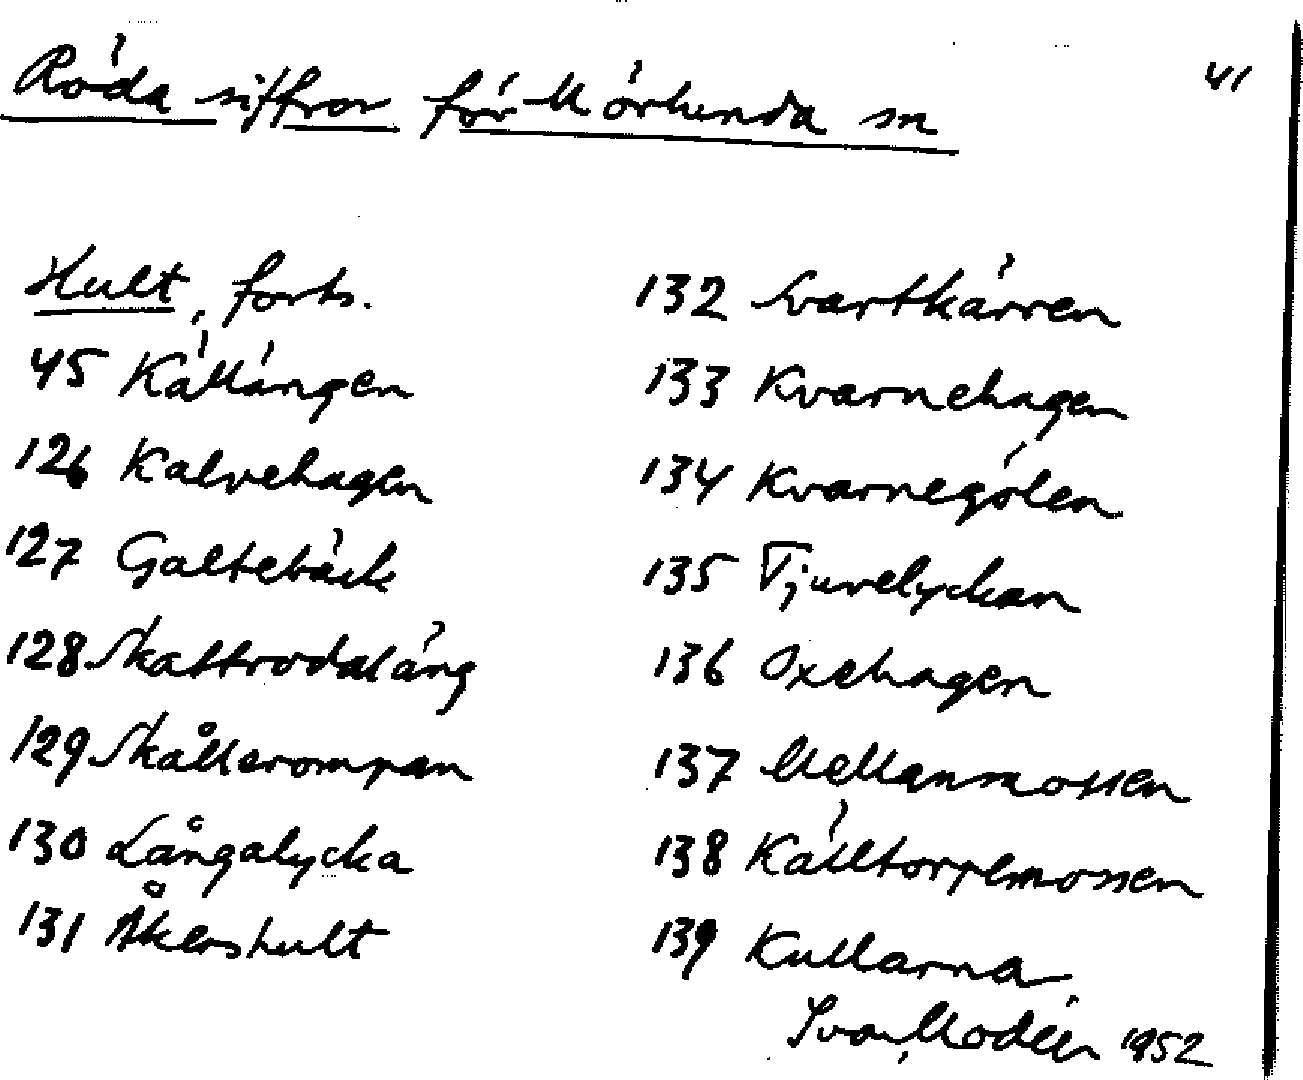 41
Röda siffror för Mörlunda sn
Hult, forts.
45 Källängen
126 Kalvehagen
127 Galtebäck
128 Skattrodaläng
129 Skållerompan
130 Långalycka
131 Åkershult
132 Svartkärren
133 Kvarnehagen
134 Kvarnegölen
135 Tjurelyckan
136 Oxehagen
137 Mellanmossen
138 Källtorpemossen
139 Kullarna
Ivar Modéer 1952